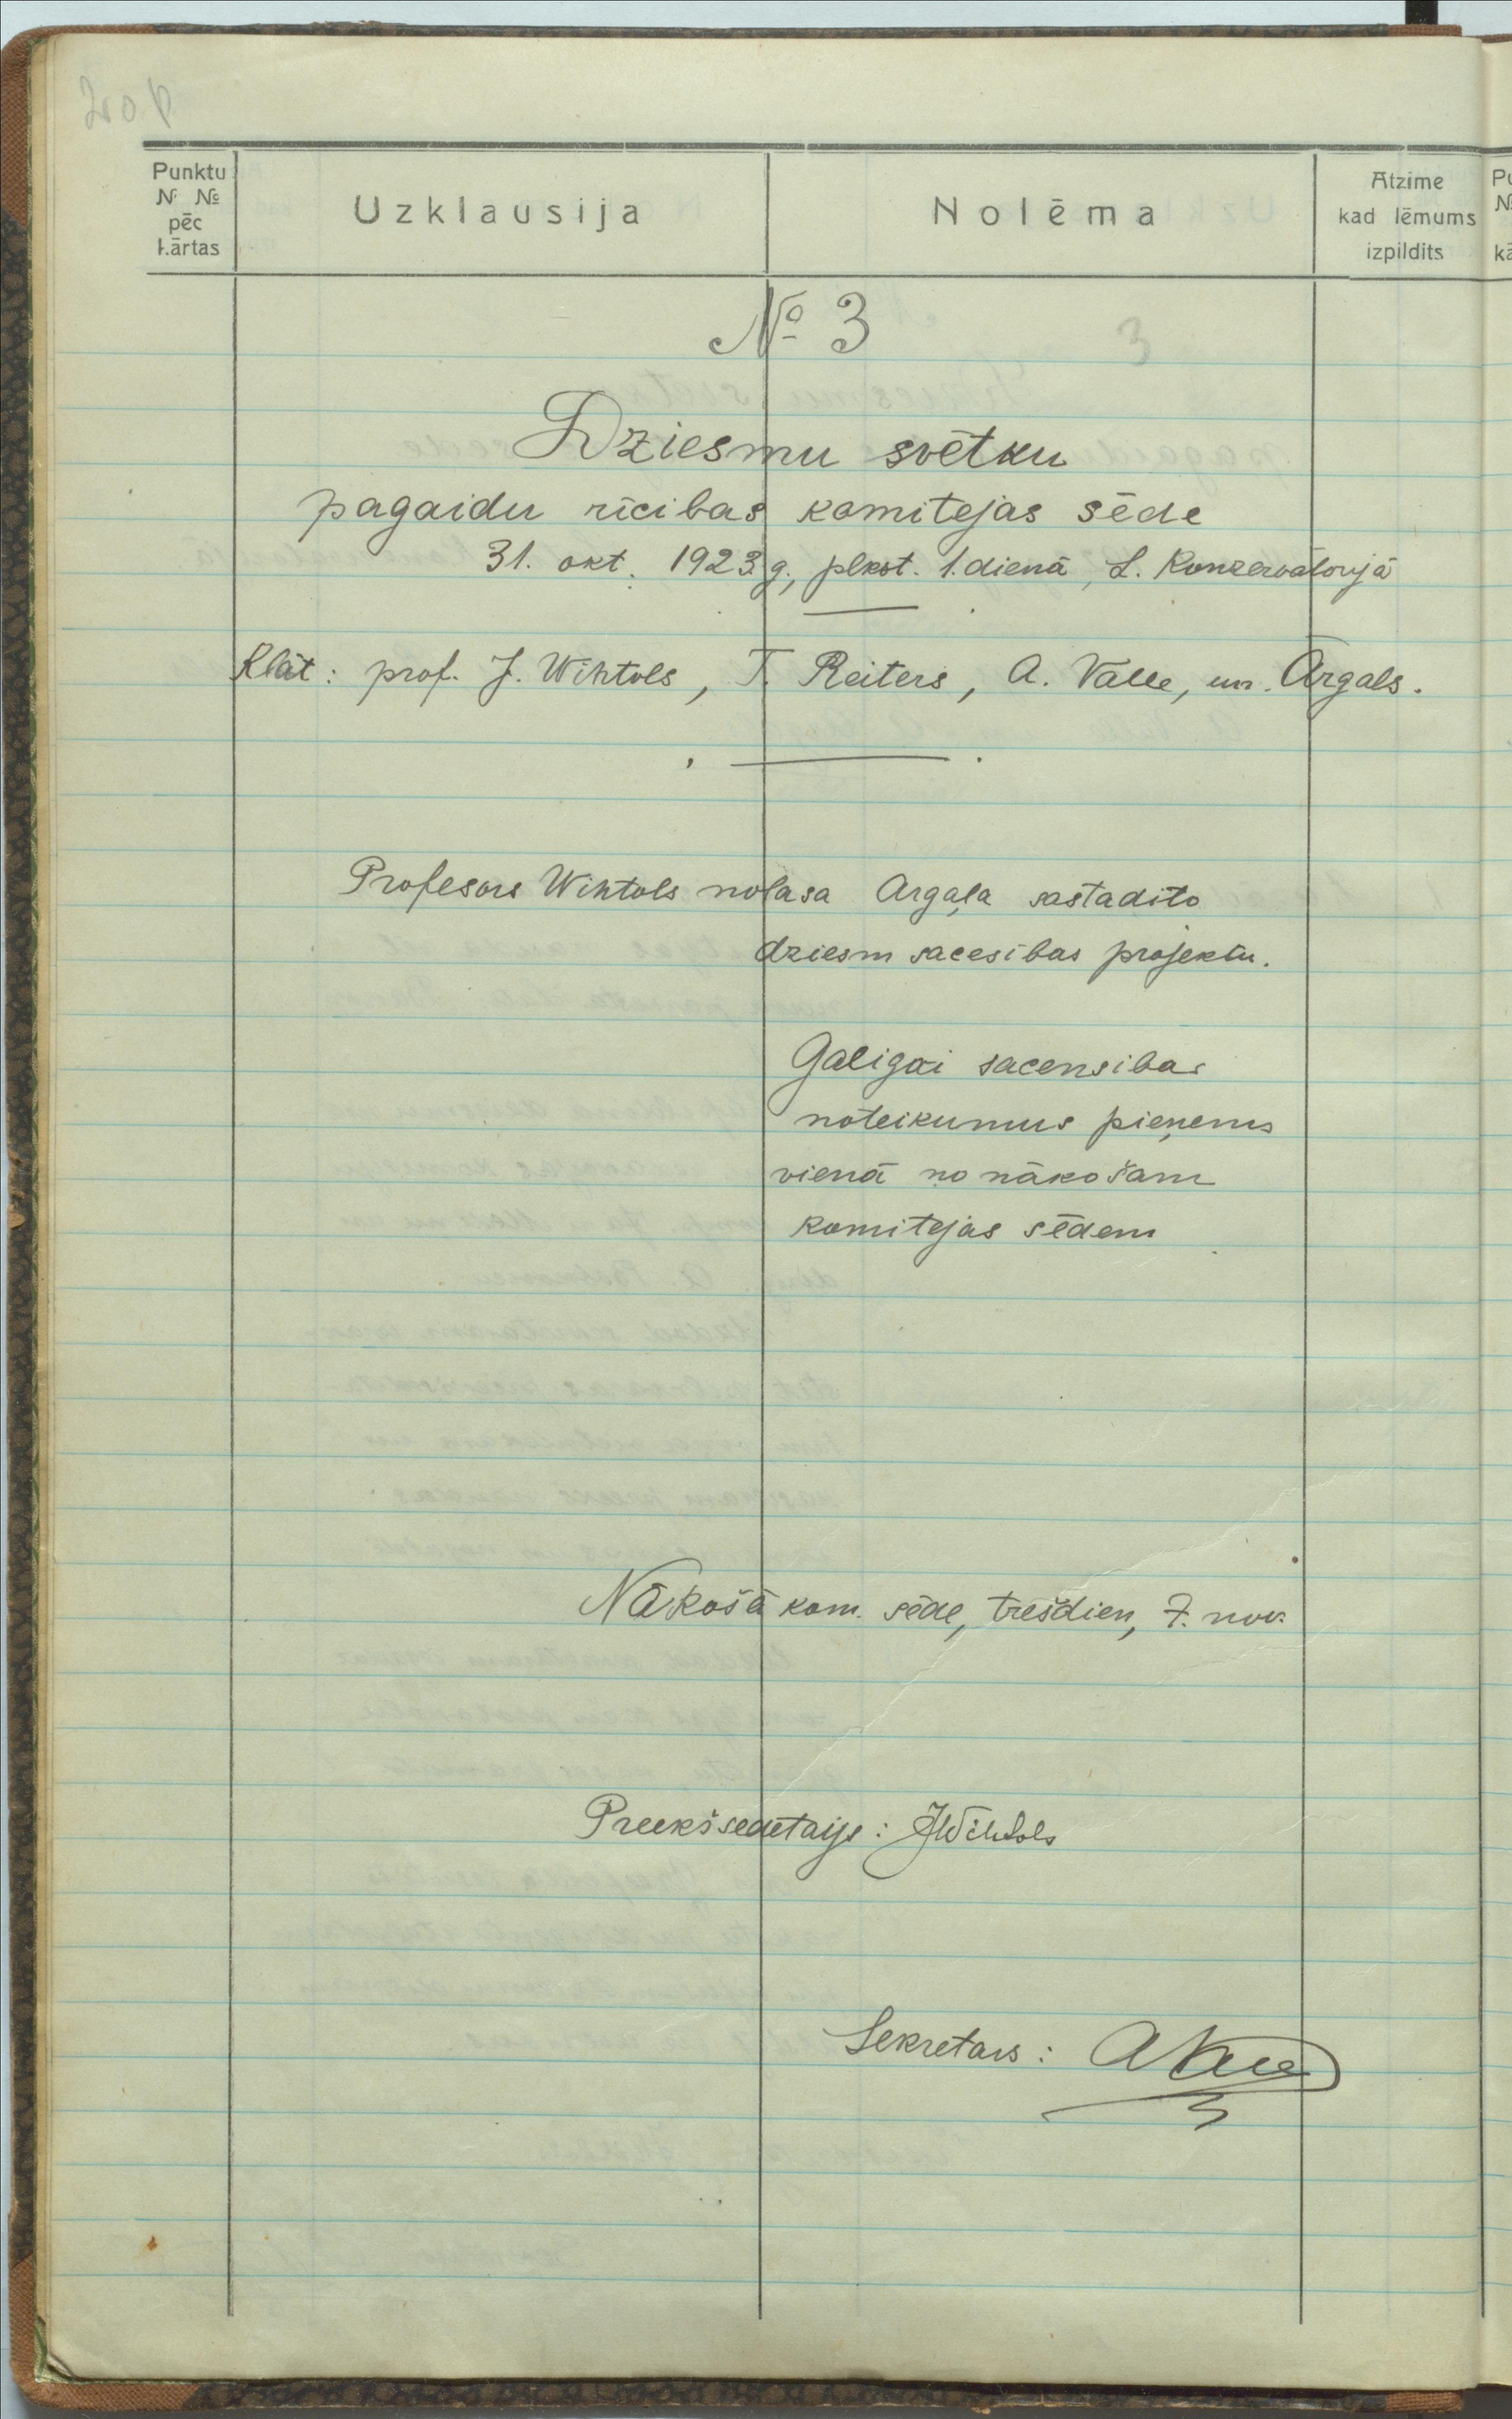 Punktu
№ №
pēc
kārtas
Uzklausija
Nolēma
Atzime
kad lēmums
izpildits
№ 3
3
Dziesmu svētku
pagaidu rīcibas komitejas sēde
31. okt. 1923 g., plkst. 1. dienā, L. Konzervatorijā
Klāt: prof. J. Wihtols, T. Reiters, A. Valle, un Ārgals.
Profesors Wihtols nolasa Argaļa sastadito
dziesm sacesības projektu.
Galigai sacensibas
noteikumus pieņems
vienā no nākošam
komitejas sēdem
Nākošā kom. sēde, trešdien, 7. nov.
Preekšsedetajs: JWihtols
Sekretars: AValle